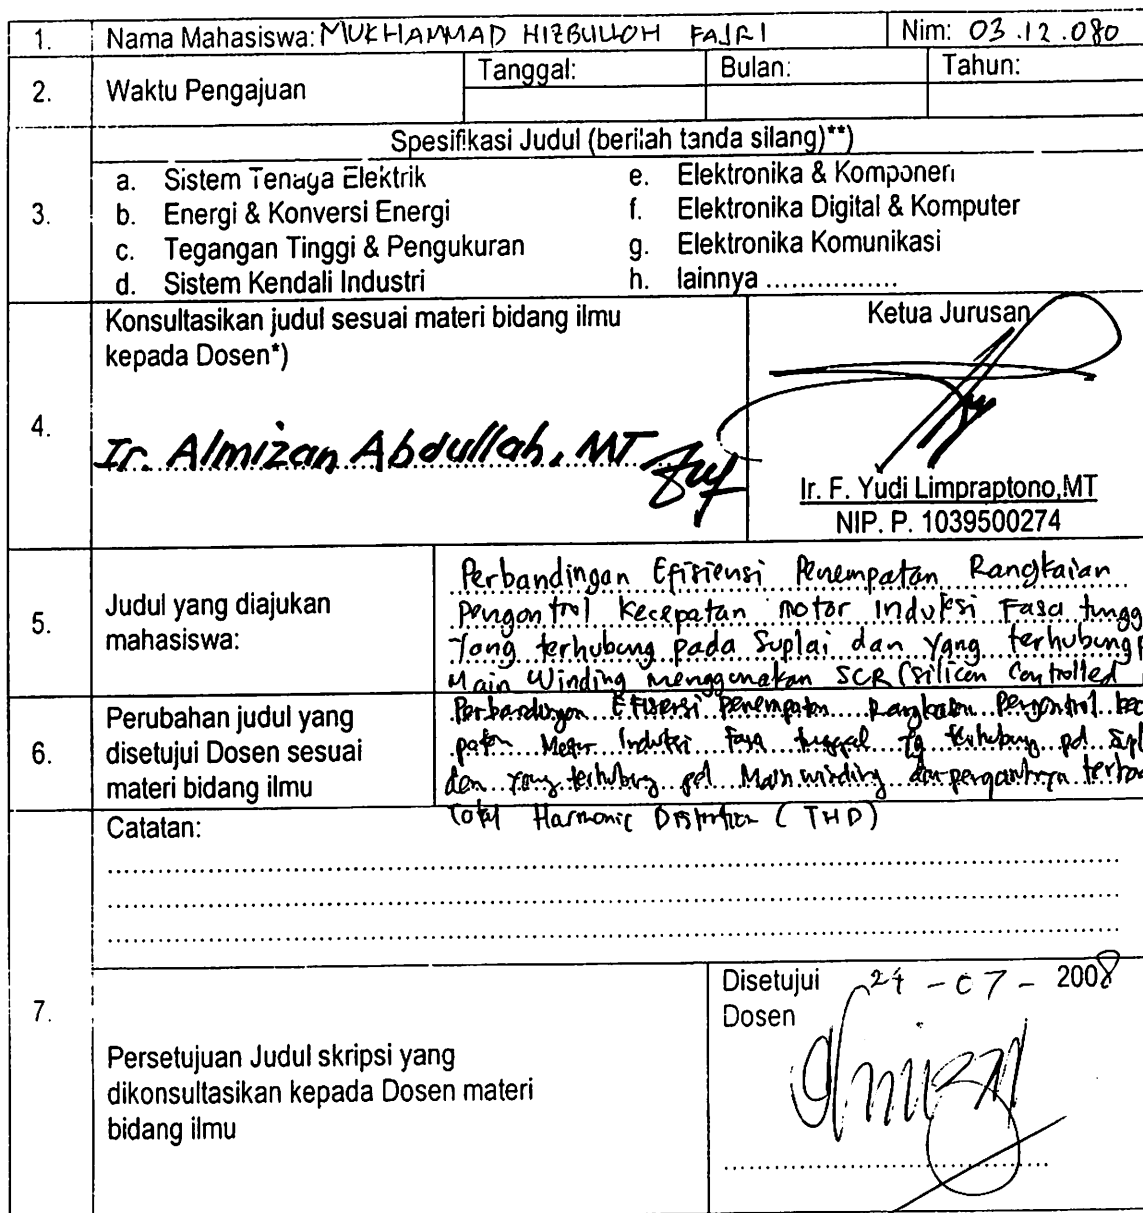 1. Nama Mahasiswa: MUKHAMMAD HIZBULLOH FAJRI Nim: 03.12.080
2. Waktu Pengajuan Tanggal: Bulan: Tahun:
3. Spesifikasi Judul (berilah tanda silang)**)
a. Sistem Tenaga Elektrik
b. Energi & Konversi Energi
c. Tegangan Tinggi & Pengukuran
d. Sistem Kendali Industri
e. Elektronika & Komponen
f. Elektronika Digital & Komputer
g. Elektronika Komunikasi
h. lainnya ................
4. Konsultasikan judul sesuai materi bidang ilmu
kepada Dosen*)
Ir. Almizan Abdullah, MT
Ketua Jurusan
Ir. F. Yudi Limpraptono,MT
NIP. P. 1039500274
5. Judul yang diajukan
mahasiswa:
Perbandingan Efisiensi Penempatan Rangkaian
Pengontrol Kecepatan motor Induksi Fasa tungg
Yang terhubung pada Suplai dan Yang terhubung p
Main Winding menggunakan SCR (Silicon Controlled
6. Perubahan judul yang
disetujui Dosen sesuai
materi bidang ilmu
Perbandingan Efisiensi Penempatan Rangkaian Pengontrol kec
patan Motor Induksi Fasa tunggal yg terhubung pd Supl
dan yang terhubung pd Main winding dan
Total Harmonic Distortion (THD)
7. Catatan:
Persetujuan Judul skripsi yang
dikonsultasikan kepada Dosen materi
bidang ilmu
Disetujui 24 - 07 - 2008
Dosen